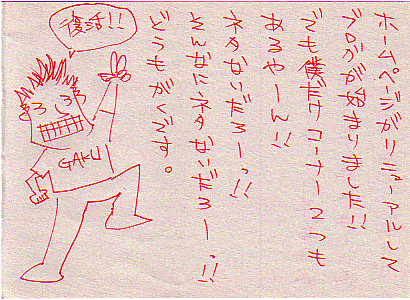 ホームページがリニューアルして
ブログが始まりました!!
でも僕だけコーナー2つも
あるやーん!!
ネタないだろーっ!!
そんなにネタないだろーっ!!
どうもがくです。
復活!!
GAKU